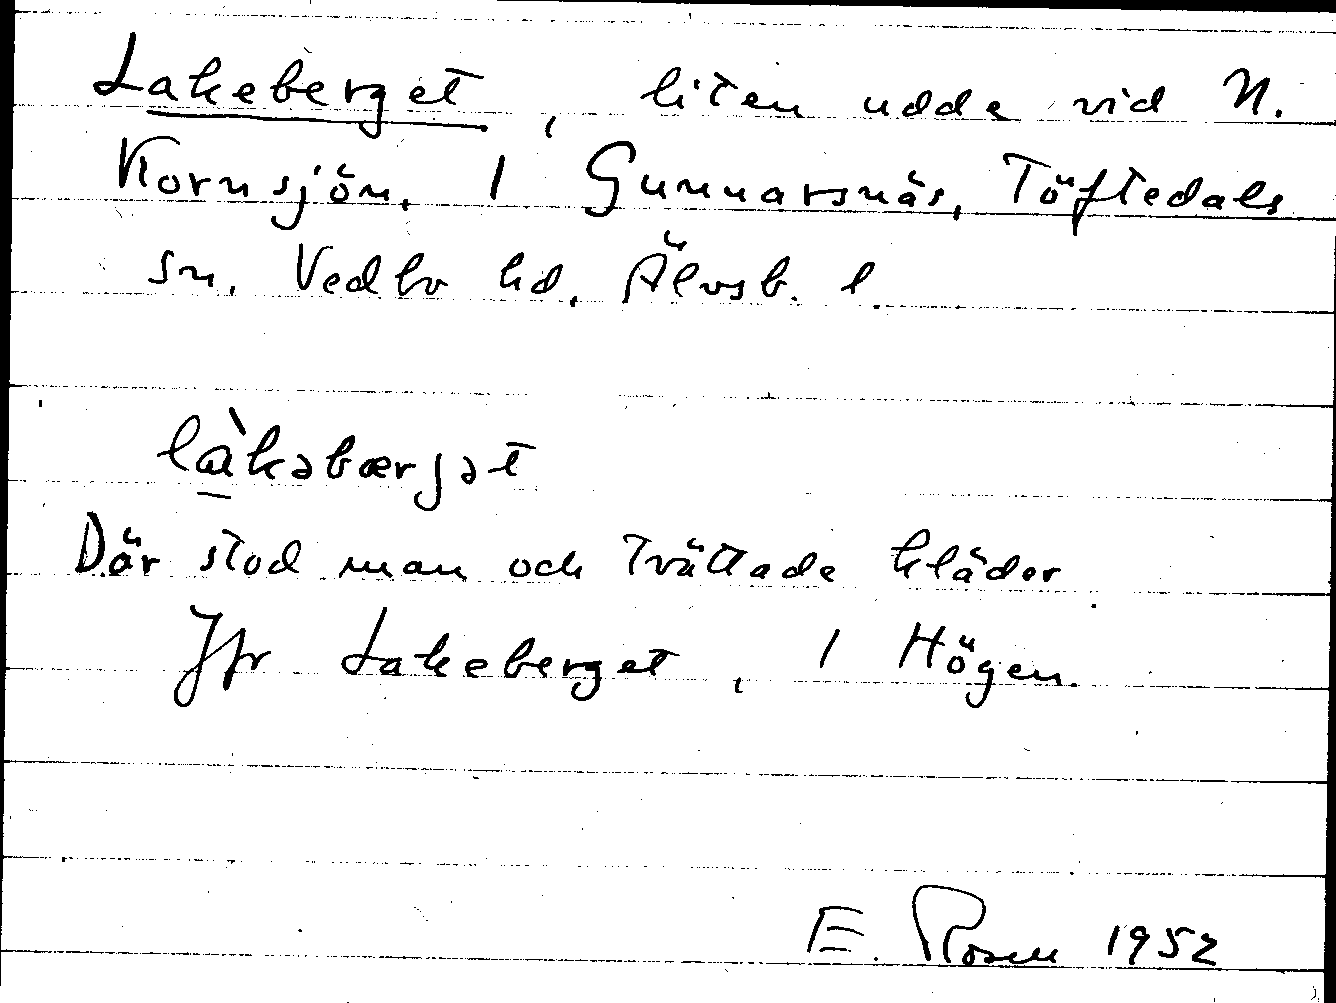 Lakeberget, liten udde vid N.
Kornsjön, 1 Gunnarsnäs, Töftedals
sn. Vedbo hd, Älvsb. l.
là̱kəbærjət
Där stod man och tvättade kläder
Jfr Lakeberget, 1 Högen.
E. Rosell 1952